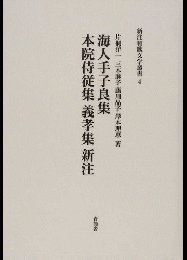 新注和歌文学叢書 4
海人手子良集
本院侍従集 義孝集 新注
片桐洋一 三木麻子 藤川晶子 岸本理恵 著
青簡舎